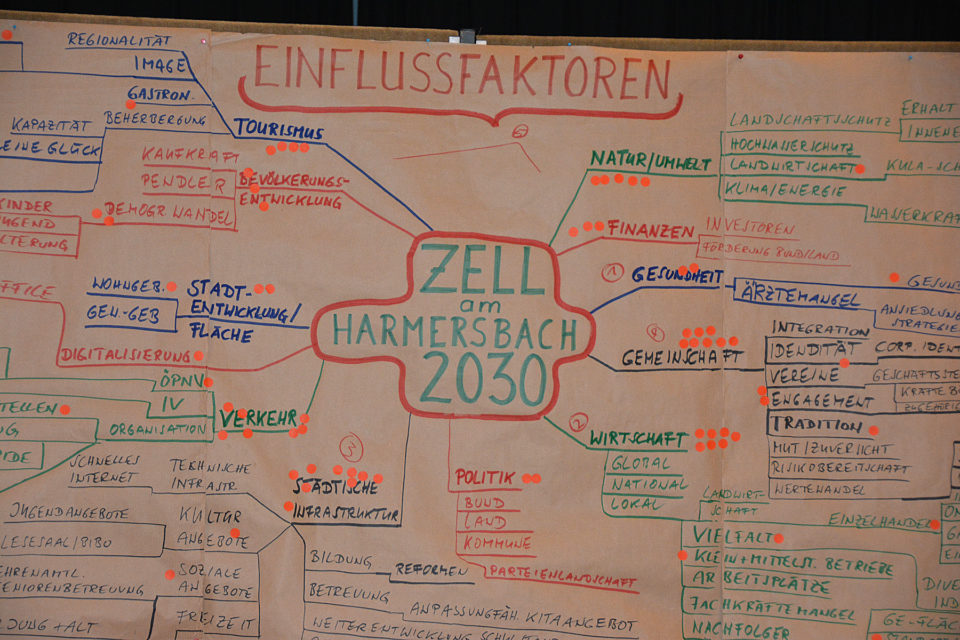 EINFLUSSFAKTOREN
ZELL
am
HARMERSBACH
2030
REGIONALITÄT
IMAGE
GASTRON.
BEHERBERGUNG
TOURISMUS
KAPAZITÄT
EINE GLÜCK
KAUFKRAFT
PENDLER
DEMOGR WANDEL
BEVÖLKERUNGS-
ENTWICKLUNG
KINDER
JUGEND
ALTERUNG
WOHNGEB.
GEW-GEB
STADT-
ENTWICKLUNG/
FLÄCHE
OFFICE
DIGITALISIERUNG
ÖPNV
IV
ORGANISATION
VERKEHR
STELLEN
SCHNELLES
INTERNET
TECHNISCHE
INFRASTR.
JUGENDANGEBOTE
LESESAAL/BIBO
KULTUR
ANGEBOTE
EHRENAMTL.
SENIORENBETREUUNG
SOZIALE
ANGEBOTE
FREIZEIT
BILDUNG + ALT
5
STÄDTISCHE
INFRASTRUKTUR
BILDUNG
REFORMEN
BETREUUNG
ANPASSUNGFÄH. KITAANGEBOT
WEITERENTWICKLUNG
POLITIK
BUND
LAND
KOMMUNE
PARTEIENLANDSCHAFT
6
NATUR/UMWELT
LANDSCHAFTSSCHUTZ
ERHALT
INNENE
HOCHWASERSCHUTZ
LANDWIRTSCHAFT
KULA-SCH
KLIMA/ENERGIE
WASSERKRAF
FINANZEN
INVESTOREN
FÖRDERUNG BUND/LAND
1
GESUNDHEIT
ÄRZTEMANGEL
GESUN
ANSIEDLUNG
STRATEGIE
4
GEMEINSCHAFT
INTEGRATION
IDENDITÄT
CORP. IDENT
VEREINE
GESCHÄFTSSTE
ENGAGEMENT
KRÄFTE BÜ
ZUGEHÖRIG
TRADITION
MUT/ZUVERSICHT
RISIKOBEREITSCHAFT
WERTEWANDEL
2
WIRTSCHAFT
GLOBAL
NATIONAL
LOKAL
LANDWIRT-
SCHAFT
EINZELHANDEL
VIELFALT
KLEIN+MITTELST. BETRIEBE
ARBEITSPLÄTZE
FACHKRÄFTEMANGEL
NACHFOLGER
DIVE
IND
GE-FLÄC